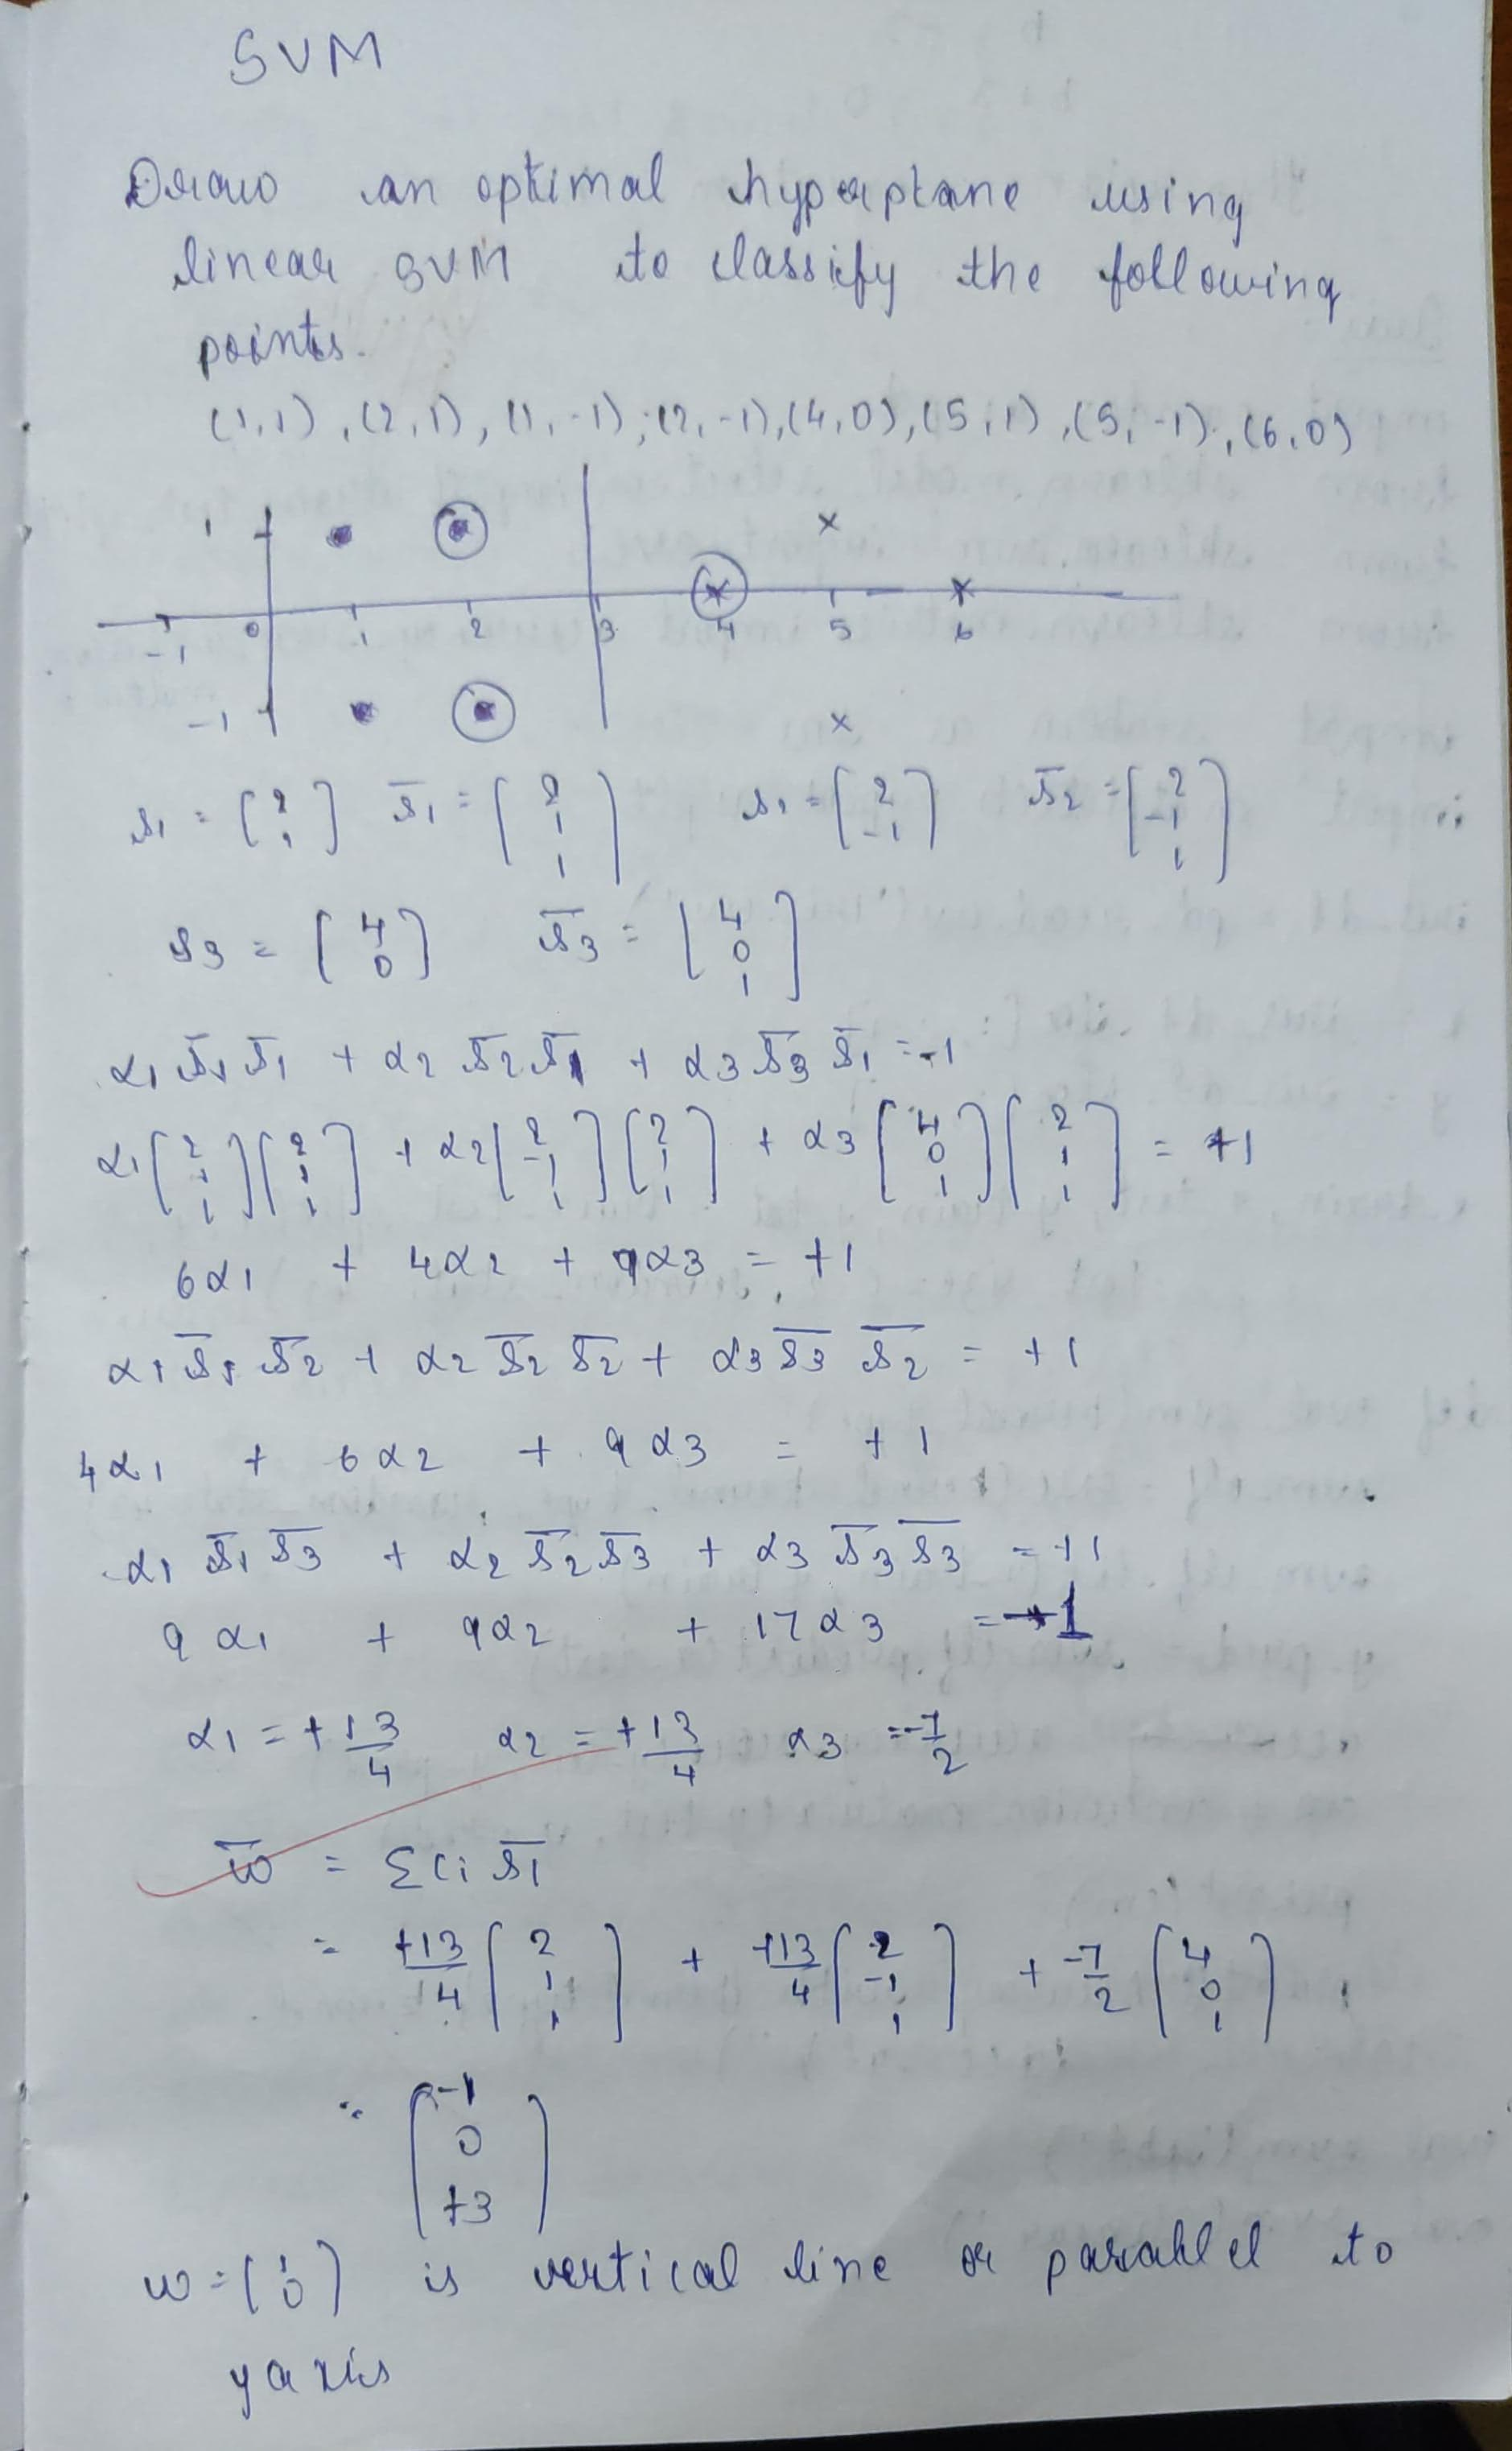 SVM
Draw an optimal hyperplane using
linear SVM to classify the following
points.
(1,1), (2,1), (1,-1), (2,-1), (4,0), (5,1), (5,-1), (6,0)
1
-1 0 1 2 3 4 5 6
-1
s1 = [2 1] s̄1 = [2 1 1] s1 = [2 -1] s̄2 = [2 -1 1]
s3 = [4 0] s̄3 = [4 0 1]
α1 s̄1 s̄1 + α2 s̄2 s̄1 + α3 s̄3 s̄1 = -1
α1 [2 1 1] [2 1 1] + α2 [2 -1 1] [2 1 1] + α3 [4 0 1] [2 1 1] = +1
6α1 + 4α2 + 9α3 = +1
α1 s̄1 s̄2 + α2 s̄2 s̄2 + α3 s̄3 s̄2 = +1
4α1 + 6α2 + 9α3 = +1
α1 s̄1 s̄3 + α2 s̄2 s̄3 + α3 s̄3 s̄3 = +1
9α1 + 9α2 + 17α3 = -1
α1 = +13/4 α2 = +13/4 α3 = -7/2
w̄ = Σ(i s̄1
= +13/4 [2 1 1] + +13/4 [2 -1 1] + -7/2 [4 0 1]
= [-1 0 +3]
w = (1 0) is vertical line or parallel to
y axis